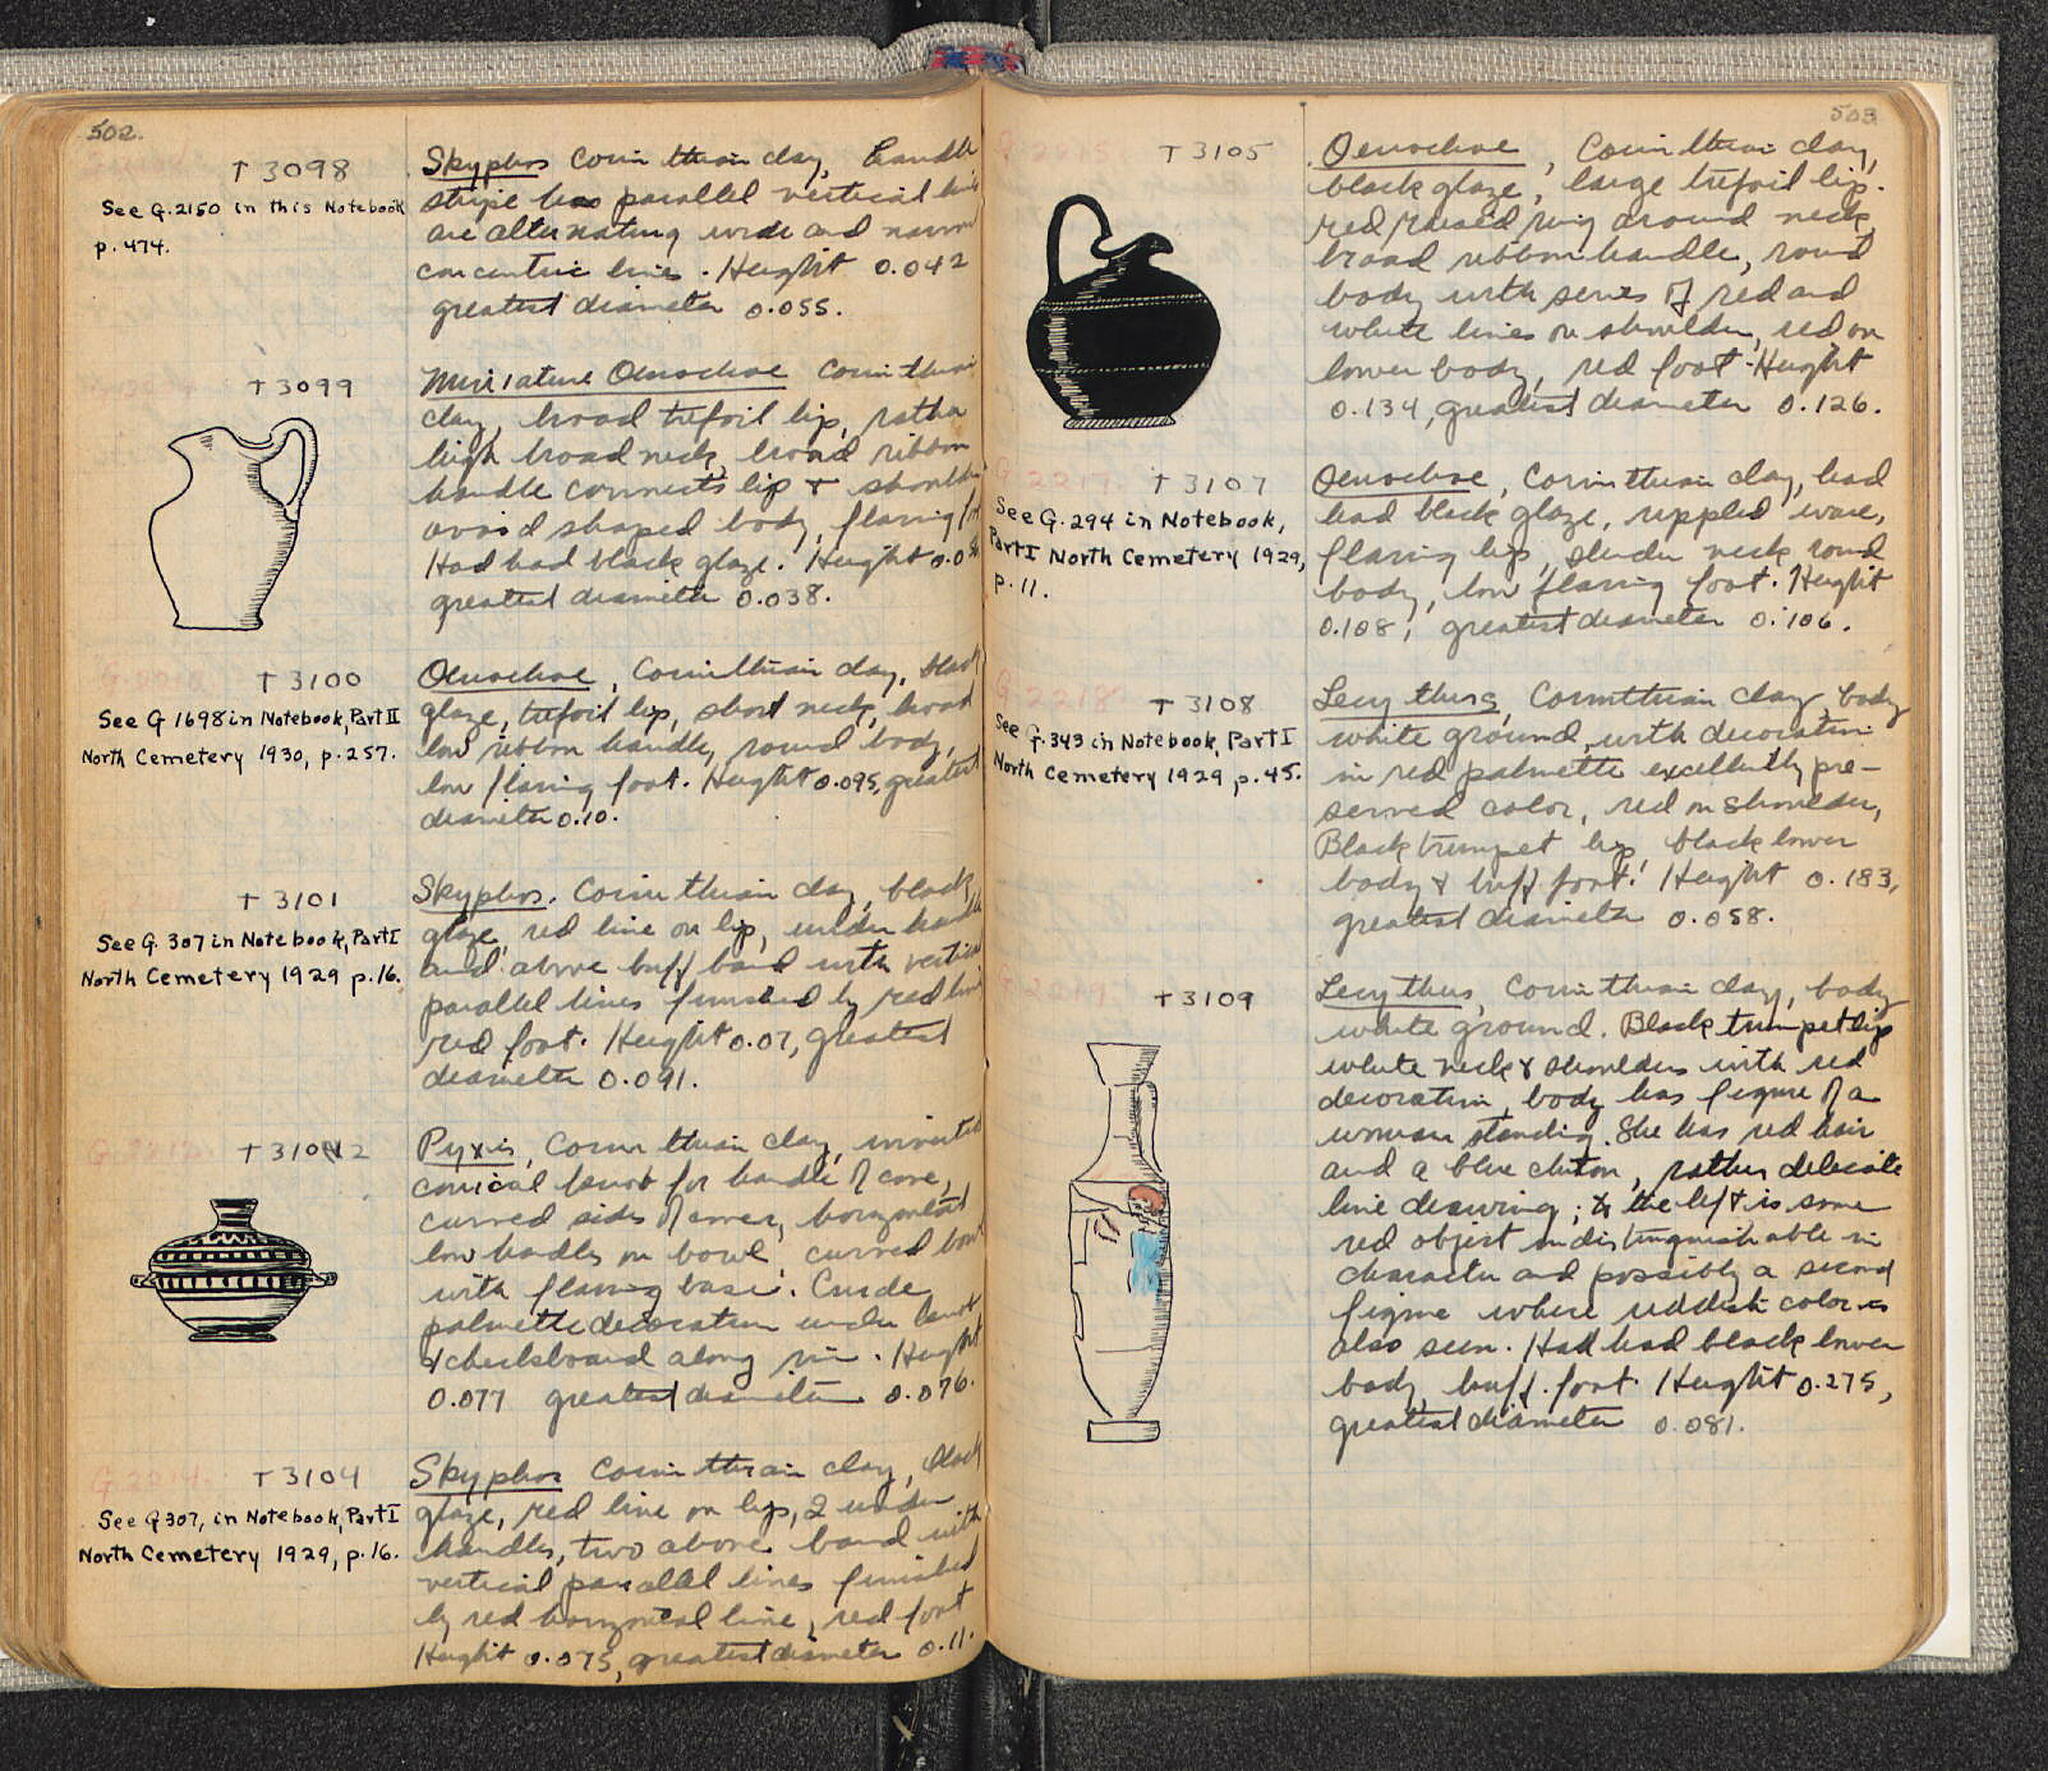 502.
T 3098
See G.2150 in this Notebook
p. 474.
Skyphos Corinthian clay, handle
stripe has parallel vertical lines
are alternating wide and narrow
concentric lines. Height 0.042
greatest diameter 0.055.
T 3099
Miniature Oenochoe Corinthian
clay, broad trefoil lip, rather
high broad neck, broad ribbon
handle connects lip & shoulder
ovoid shaped body, flaring foot
Had bad black glaze. Height 0.0
greatest diameter 0.038.
T 3100
See G 1698 in Notebook, Part II
North Cemetery 1930, p.257.
Oenochoe, Corinthian clay, black
glaze, trefoil lip, short neck, broad
low ribbon handle, round body,
low flaring foot. Height 0.095, greatest
diameter 0.10.
T 3101
See G. 307 in Notebook, Part I
North Cemetery 1929 p.16.
Skyphos. Corinthian clay, black
glaze, red line on lip, under handle
and above buff band with vertical
parallel lines finished by red line
red foot. Height 0.07, greatest
diameter 0.091.
G.2212.
T 3102
Pyxis, Corinthian clay, inverted
conical knob for handle of cove,
curved sides of cover, horizontal
low handles on bowl, curved bowl
with flaring base. Crude
palmette decoration under knob
& checkboard along rim. Height
0.077 greatest diameter 0.076.
G.2214.
T 3104
See G 307, in Notebook, Part I
North Cemetery 1929, p.16.
Skyphos Corinthian clay, black
glaze, red line on lip, 2 under
handles, two above band with
vertical parallel lines finished
by red horizontal line, red foot
Height 0.075, greatest diameter 0.11.
503
G.2215
T 3105
Oenochoe, Corinthian clay,
black glaze, large trefoil lip.
red raised ring around neck,
broad ribbon handle, round
body with series of red and
white lines on shoulder, red on
lower body, red foot. Height
0.134, greatest diameter 0.126.
G 2217
T 3107
See G. 294 in Notebook,
Part I North Cemetery 1929,
p. 11.
Oenochoe, Corinthian clay, had
bad black glaze, rippled ware,
flaring lip, slender neck round
body, low flaring foot. Height
0.108, greatest diameter 0.106.
G 2218
T 3108
See G.343 in Notebook, Part I
North Cemetery 1929, p. 45.
Lecythus, Corinthian clay, body
white ground, with decoration
in red palmette excellently pre-
served color, red on shoulder,
Black trumpet lip, black lower
body & buff foot. Height 0.183,
greatest diameter 0.058.
G 2219
T 3109
Lecythus, Corinthian clay, body
white ground. Black trumpet lip
white neck & shoulders with red
decoration, body has figure of a
woman standing. She has red hair
and a blue chiton, rather delicate
line drawing; to the left is some
red object indistinguishable in
character and possibly a second
figure where reddish color is
also seen. Had bad black lower
body, buff foot. Height 0.275,
greatest diameter 0.081.